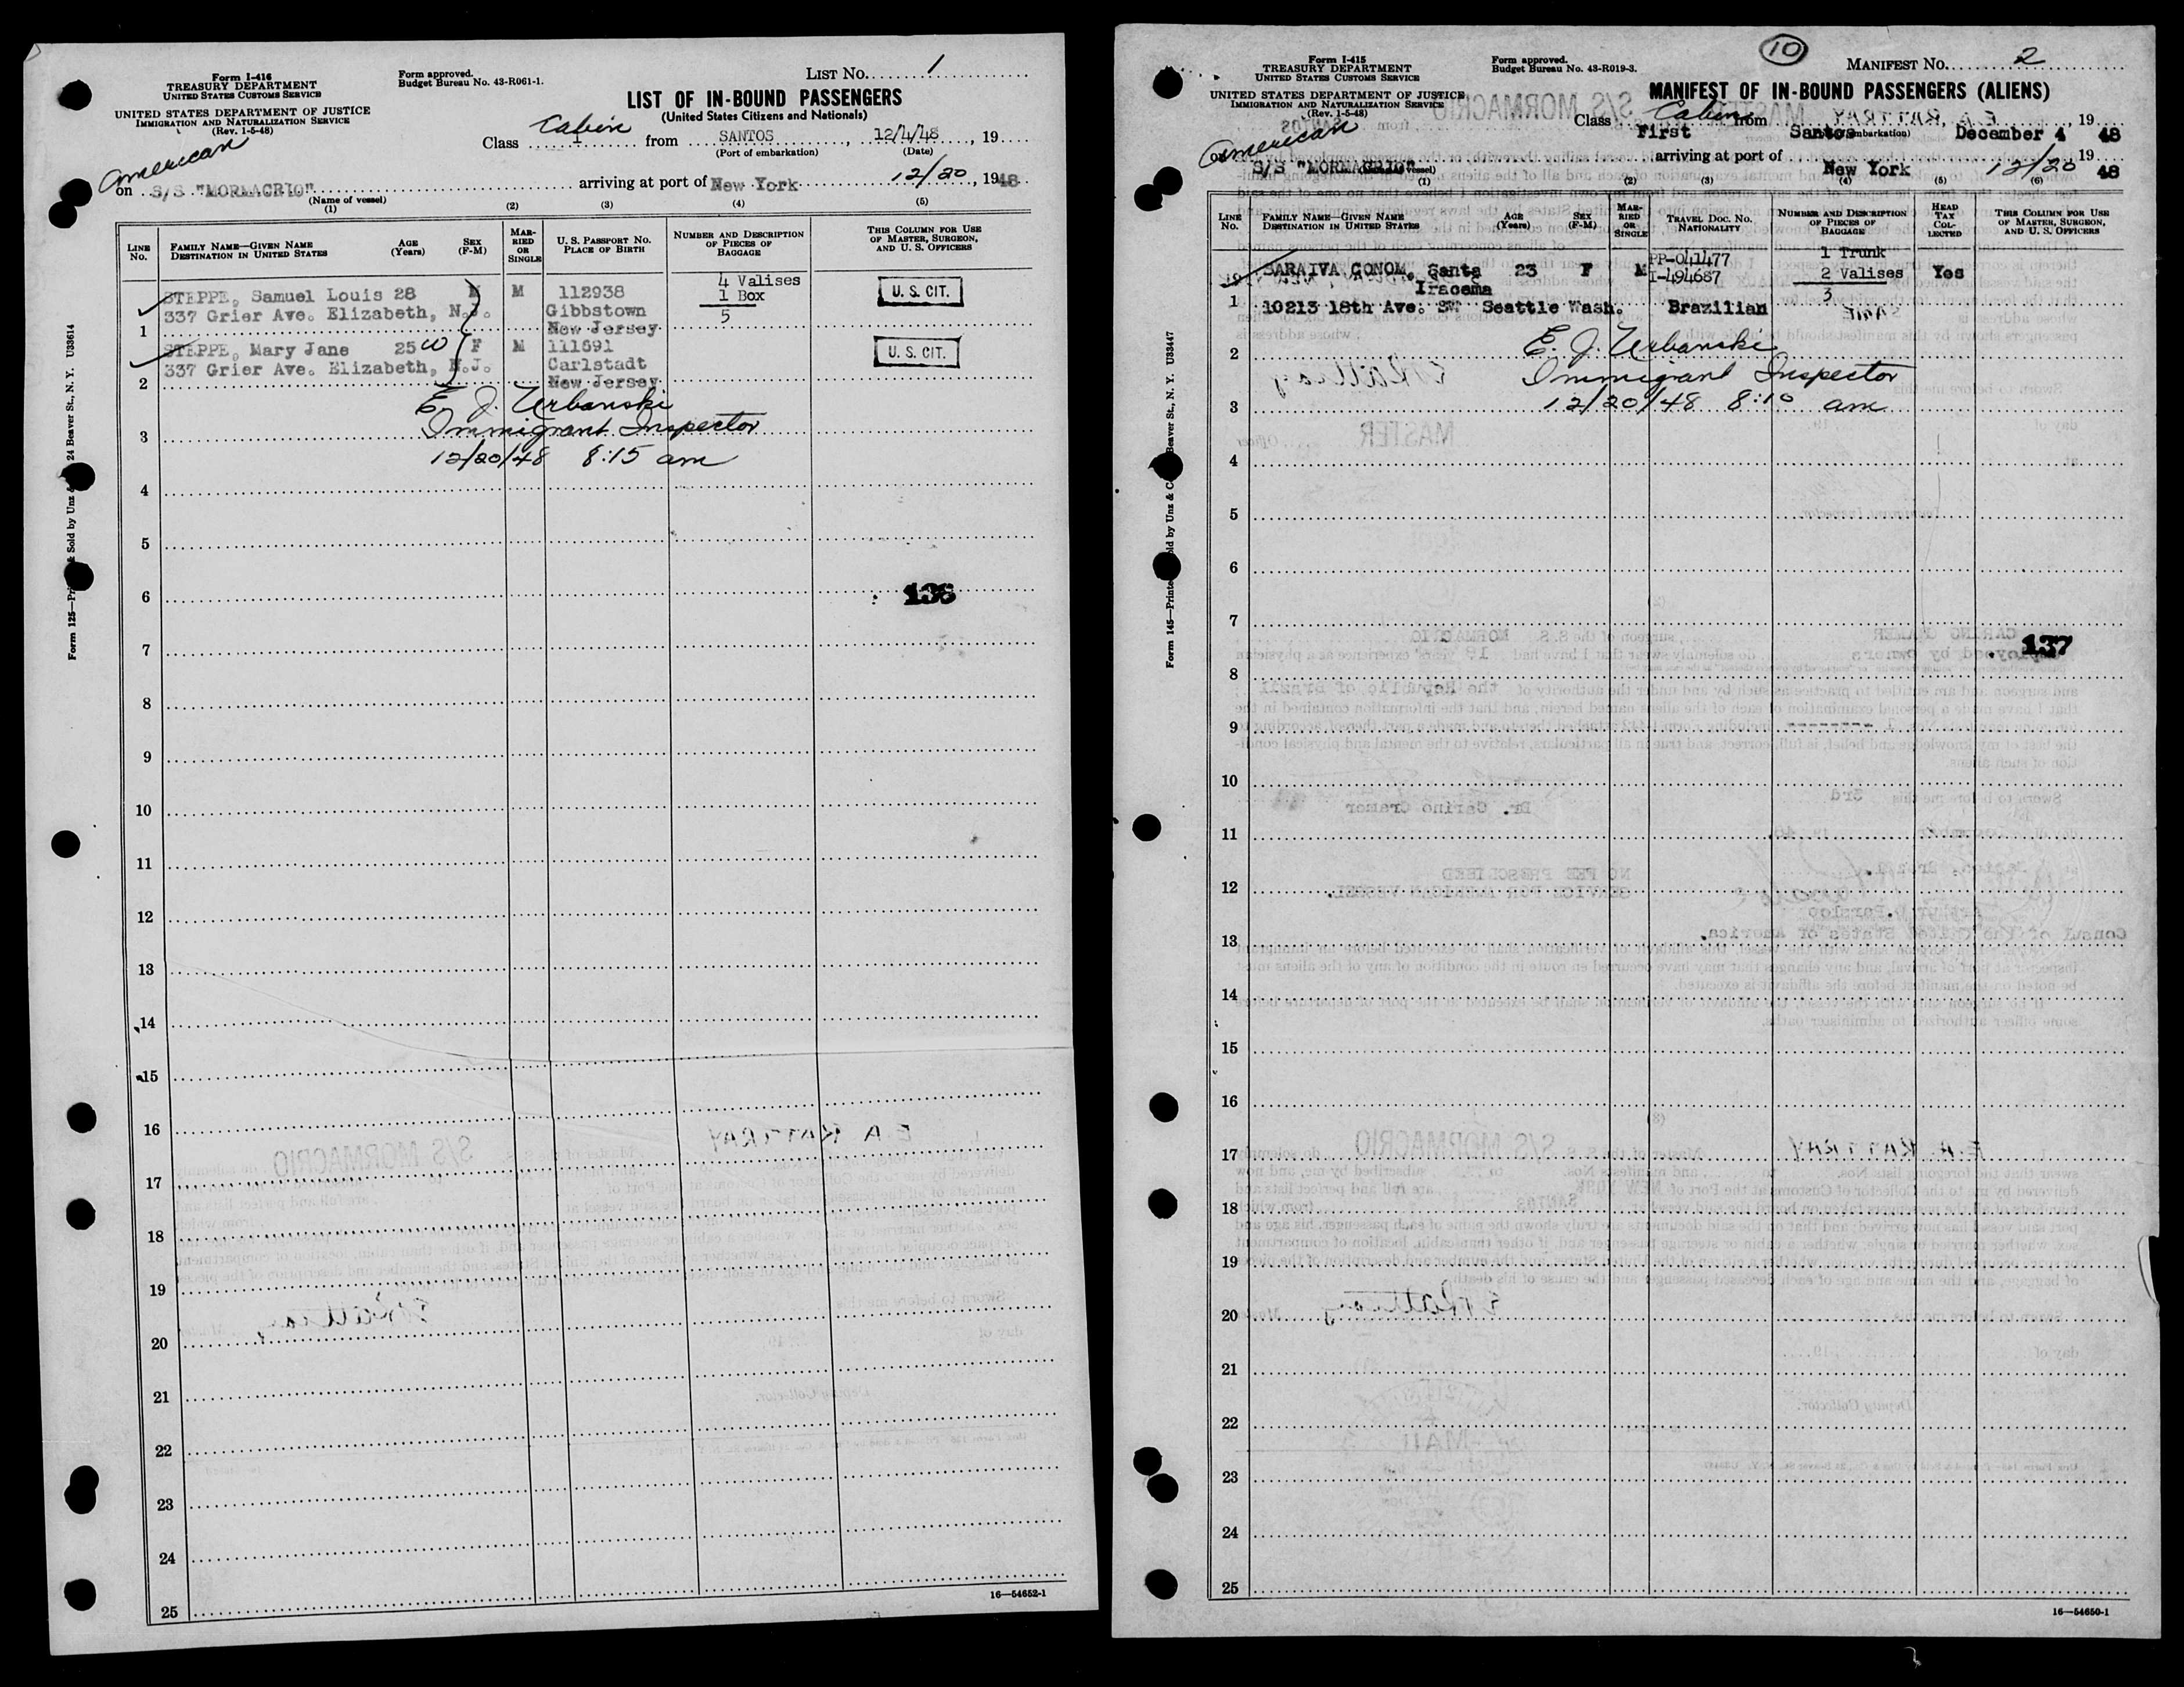 Form I-416
TREASURY DEPARTMENT
UNITED STATES CUSTOMS SERVICE
UNITED STATES DEPARTMENT OF JUSTICE
IMMIGRATION AND NATURALIZATION SERVICE
(Rev. 1-5-48)
Form approved.
Budget Bureau No. 43-R061-1.
LIST No. 1
LIST OF IN-BOUND PASSENGERS
(United States Citizens and Nationals)
Class Cabin from SANTOS, 12/4/48, 19
(Port of embarkation) (Date)
American
on S/S "MORMACRIO" arriving at port of New York 12/20, 1948
(Name of vessel)
(1) (2) (3) (4) (5)
LINE No.
FAMILY NAME—GIVEN NAME
DESTINATION IN UNITED STATES
AGE (Years)
SEX (F-M)
MARRIED OR SINGLE
U. S. PASSPORT NO.
PLACE OF BIRTH
NUMBER AND DESCRIPTION OF PIECES OF BAGGAGE
THIS COLUMN FOR USE OF MASTER, SURGEON, AND U. S. OFFICERS
STEPPE, Samuel Louis 28 M M 112938 4 Valises U. S. CIT.
337 Grier Ave. Elizabeth, N.J. Gibbstown 1 Box
1 New Jersey 5
STEPPE, Mary Jane 25 W F M 111691 U. S. CIT.
337 Grier Ave. Elizabeth, N.J. Carlstadt
2 New Jersey
E. J. Urbanski
3 Immigrant Inspector
12/20/48 8:15 am
4
5
6 136
7
8
9
10
11
12
13
14
15
16
17
18
19
20
21
22
23
24
25
16—54652-1
Form 125—
& Sold by Unz
24 Beaver St., N. Y. U33614
Form I-415
TREASURY DEPARTMENT
UNITED STATES CUSTOMS SERVICE
UNITED STATES DEPARTMENT OF JUSTICE
IMMIGRATION AND NATURALIZATION SERVICE
(Rev. 1-5-48)
Form approved.
Budget Bureau No. 43-R019-3.
10
MANIFEST No. 2
MANIFEST OF IN-BOUND PASSENGERS (ALIENS)
Class Cabin from
First Santos December 4, 19 48
American
on S/S "MORMACRIO" arriving at port of New York 12/20 19 48
(1) (2) (3) (4) (5) (6)
LINE No.
FAMILY NAME—GIVEN NAME
DESTINATION IN UNITED STATES
AGE (Years)
SEX (F-M)
MARRIED OR SINGLE
TRAVEL DOC. NO.
NATIONALITY
NUMBER AND DESCRIPTION OF PIECES OF BAGGAGE
HEAD TAX COLLECTED
THIS COLUMN FOR USE OF MASTER, SURGEON, AND U. S. OFFICERS
SARAIVA GONOM, Santa 23 F M PP-041477 1 Trunk
Iracema I-494687 2 Valises Yes
1 10213 18th Ave. SW Seattle Wash. Brazilian 3
2 E. J. Urbanski
Immigrant Inspector
3 12/20/48 8:10 am
4
5
6
7
137
8
9
10
11
12
13
14
15
16
17
18
19
20
21
22
23
24
25
16—54650-1
Form 145—Printed
Sold by Unz & Co.
Beaver St., N. Y. U33447